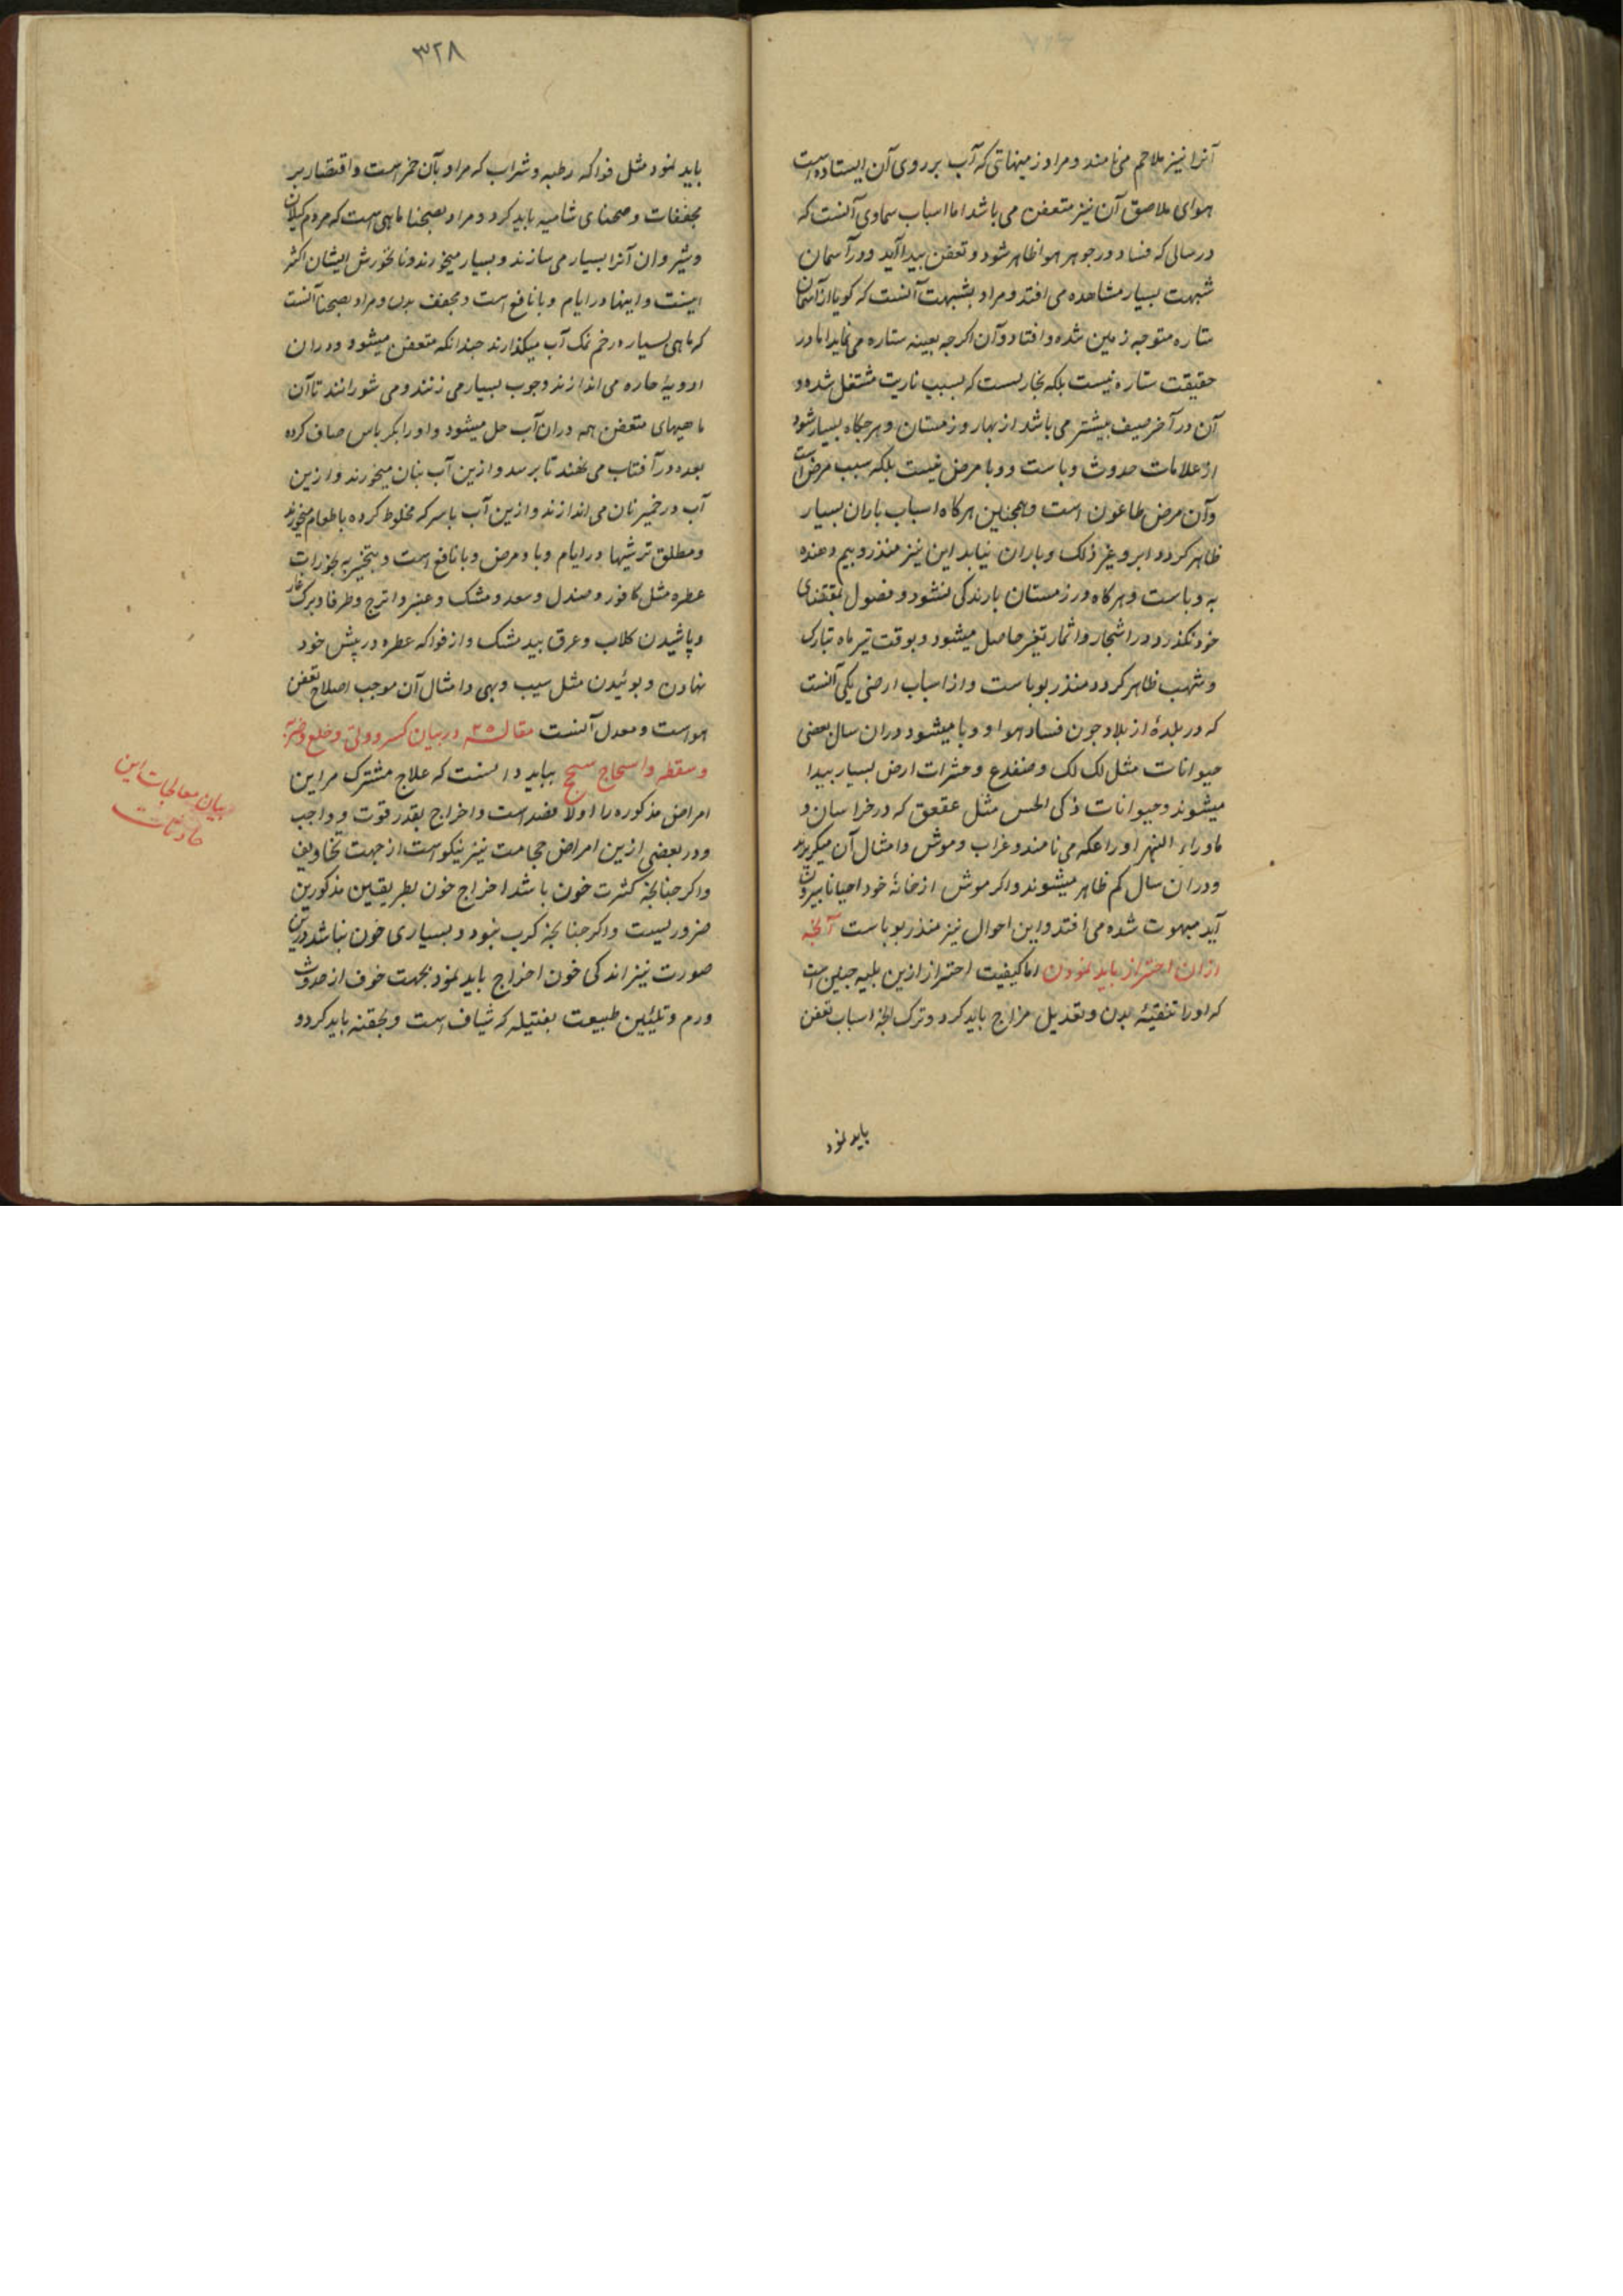 آنرا نیز ملاحم می نامند و مراد زمینهائی که آب بر روی آن ایستاده است
هوای ملاصق آن نیز متعفن می باشد اما اسباب سماوی آنست که
در سالی که فساد در جوهر هوا ظاهر شود و تعفن پیدا آید و در آسمان
شهبت بسیار مشاهده می افتد و مراد بشهبت آنست که کویا از آسمان
ستاره متوجه زمین شده و افتاد و آن اکرچه بعینه ستاره می نماید اما در
حقیقت ستاره نیست بلکه بخاریست که بسبب ناریت مشتعل شده و
آن در آخر صیف بیشتر می باشد از بهار و زمستان و هرجکاه بسیار شود
از علامات حدوث وباست و وبا مرض نیست بلکه سبب مرض است
و آن مرض طاعون است و همچنین هرکاه اسباب باران بسیار
ظاهر کردد ابر و غیر ذلک و باران نیاید این نیز منذر و بیم دهنده
به وباست و هرکاه در زمستان بارندکی نشود و فصول بمقتضای
خود نکذرد و در اشجار و اثمار تغیر حاصل میشود و بوقت تیر ماه تبارک
و شهب ظاهر کردد منذر بوباست و از اسباب ارضی یکی آنست
که در بلدهٔ از بلاد چون فساد هوا و وبا میشود دران سال بعضی
حیوانات مثل لک لک و ضفدع و حشرات ارض بسیار پیدا
میشوند و حیوانات ذکی الحس مثل عقعق که در خراسان و
ماوراء النهر او را عکه می نامند و غراب و موش و امثال آن میکریزند
و دران سال کم ظاهر میشوند و اکر موش از خانهٔ خود احیانا بیرون
آید مبهوت شده می افتد و این احوال نیز منذر بوباست آنچه
ازان احتراز باید نمودن اما کیفیت احتراز ازین بلیه چنین است
که اولا تنقیهٔ بدن و تعدیل مزاج باید کرد و ترک آنچه اسباب تعفن
باید نمود
۳۲۸
باید نمود مثل فواکه رطبه و شراب که مراد بآن خمر است و اقتصار بر
مجففات و صحنای شامیه باید کرد و مراد بصحنا ماهی است که مردم کیلان
و شروان آنرا بسیار می سازند و بسیار میخورند و نانخورش ایشان اکثر
اینست و اینها در ایام وبا نافع است و مجفف بدن و مراد بصحنا آنست
که ماهی بسیار در خم نمک آب میکذارند چندانکه متعفن میشود و دران
ادویهٔ حاره می اندازند و چوب بسیار می زنند و می شورانند تا آن
ماهیهای متعفن همه دران آب حل میشود و او را بکرباس صاف کرده
بعده در آفتاب می نهند تا برسد و ازین آب بنان میخورند و ازین
آب در خمیر نان می اندازند و ازین آب با سرکه مخلوط کرده با طعام میخورند
و مطلق ترشیها در ایام وبا و مرض وبا نافع است و بتخیر به بخورات
عطره مثل کافور و صندل و سعد و مشک و عنبر و اترج و طرفا و برک غار
و پاشیدن کلاب و عرق بید مشک و از فواکه عطره در پیش خود
نهادن و بوئیدن مثل سیب و بهی و امثال آن موجب اصلاح تعفن
هواست و معدل آنست مقاله ۲۵ در بیان کسر و وثی و خلع و ضربه
و سقطه و اسحاج سحج بباید دانست که علاج مشترک مر این
امراض مذکوره را اولا فصد است و اخراج بقدر قوت و واجب
و در بعضی ازین امراض حجامت نیز نیکو است از جهت تجاویف
و اکر چنانچه کثرت خون باشد اخراج خون بطریقین مذکورین
ضروریست و اکر چنانچه کرب نبود و بسیاری خون نباشد درین
صورت نیز اندکی خون اخراج باید نمود بجهت خوف از حدوث
ورم و تلیین طبیعت بفتیله که شیاف است و بحقنه باید کرد و
بیان معالجات این
حادثات